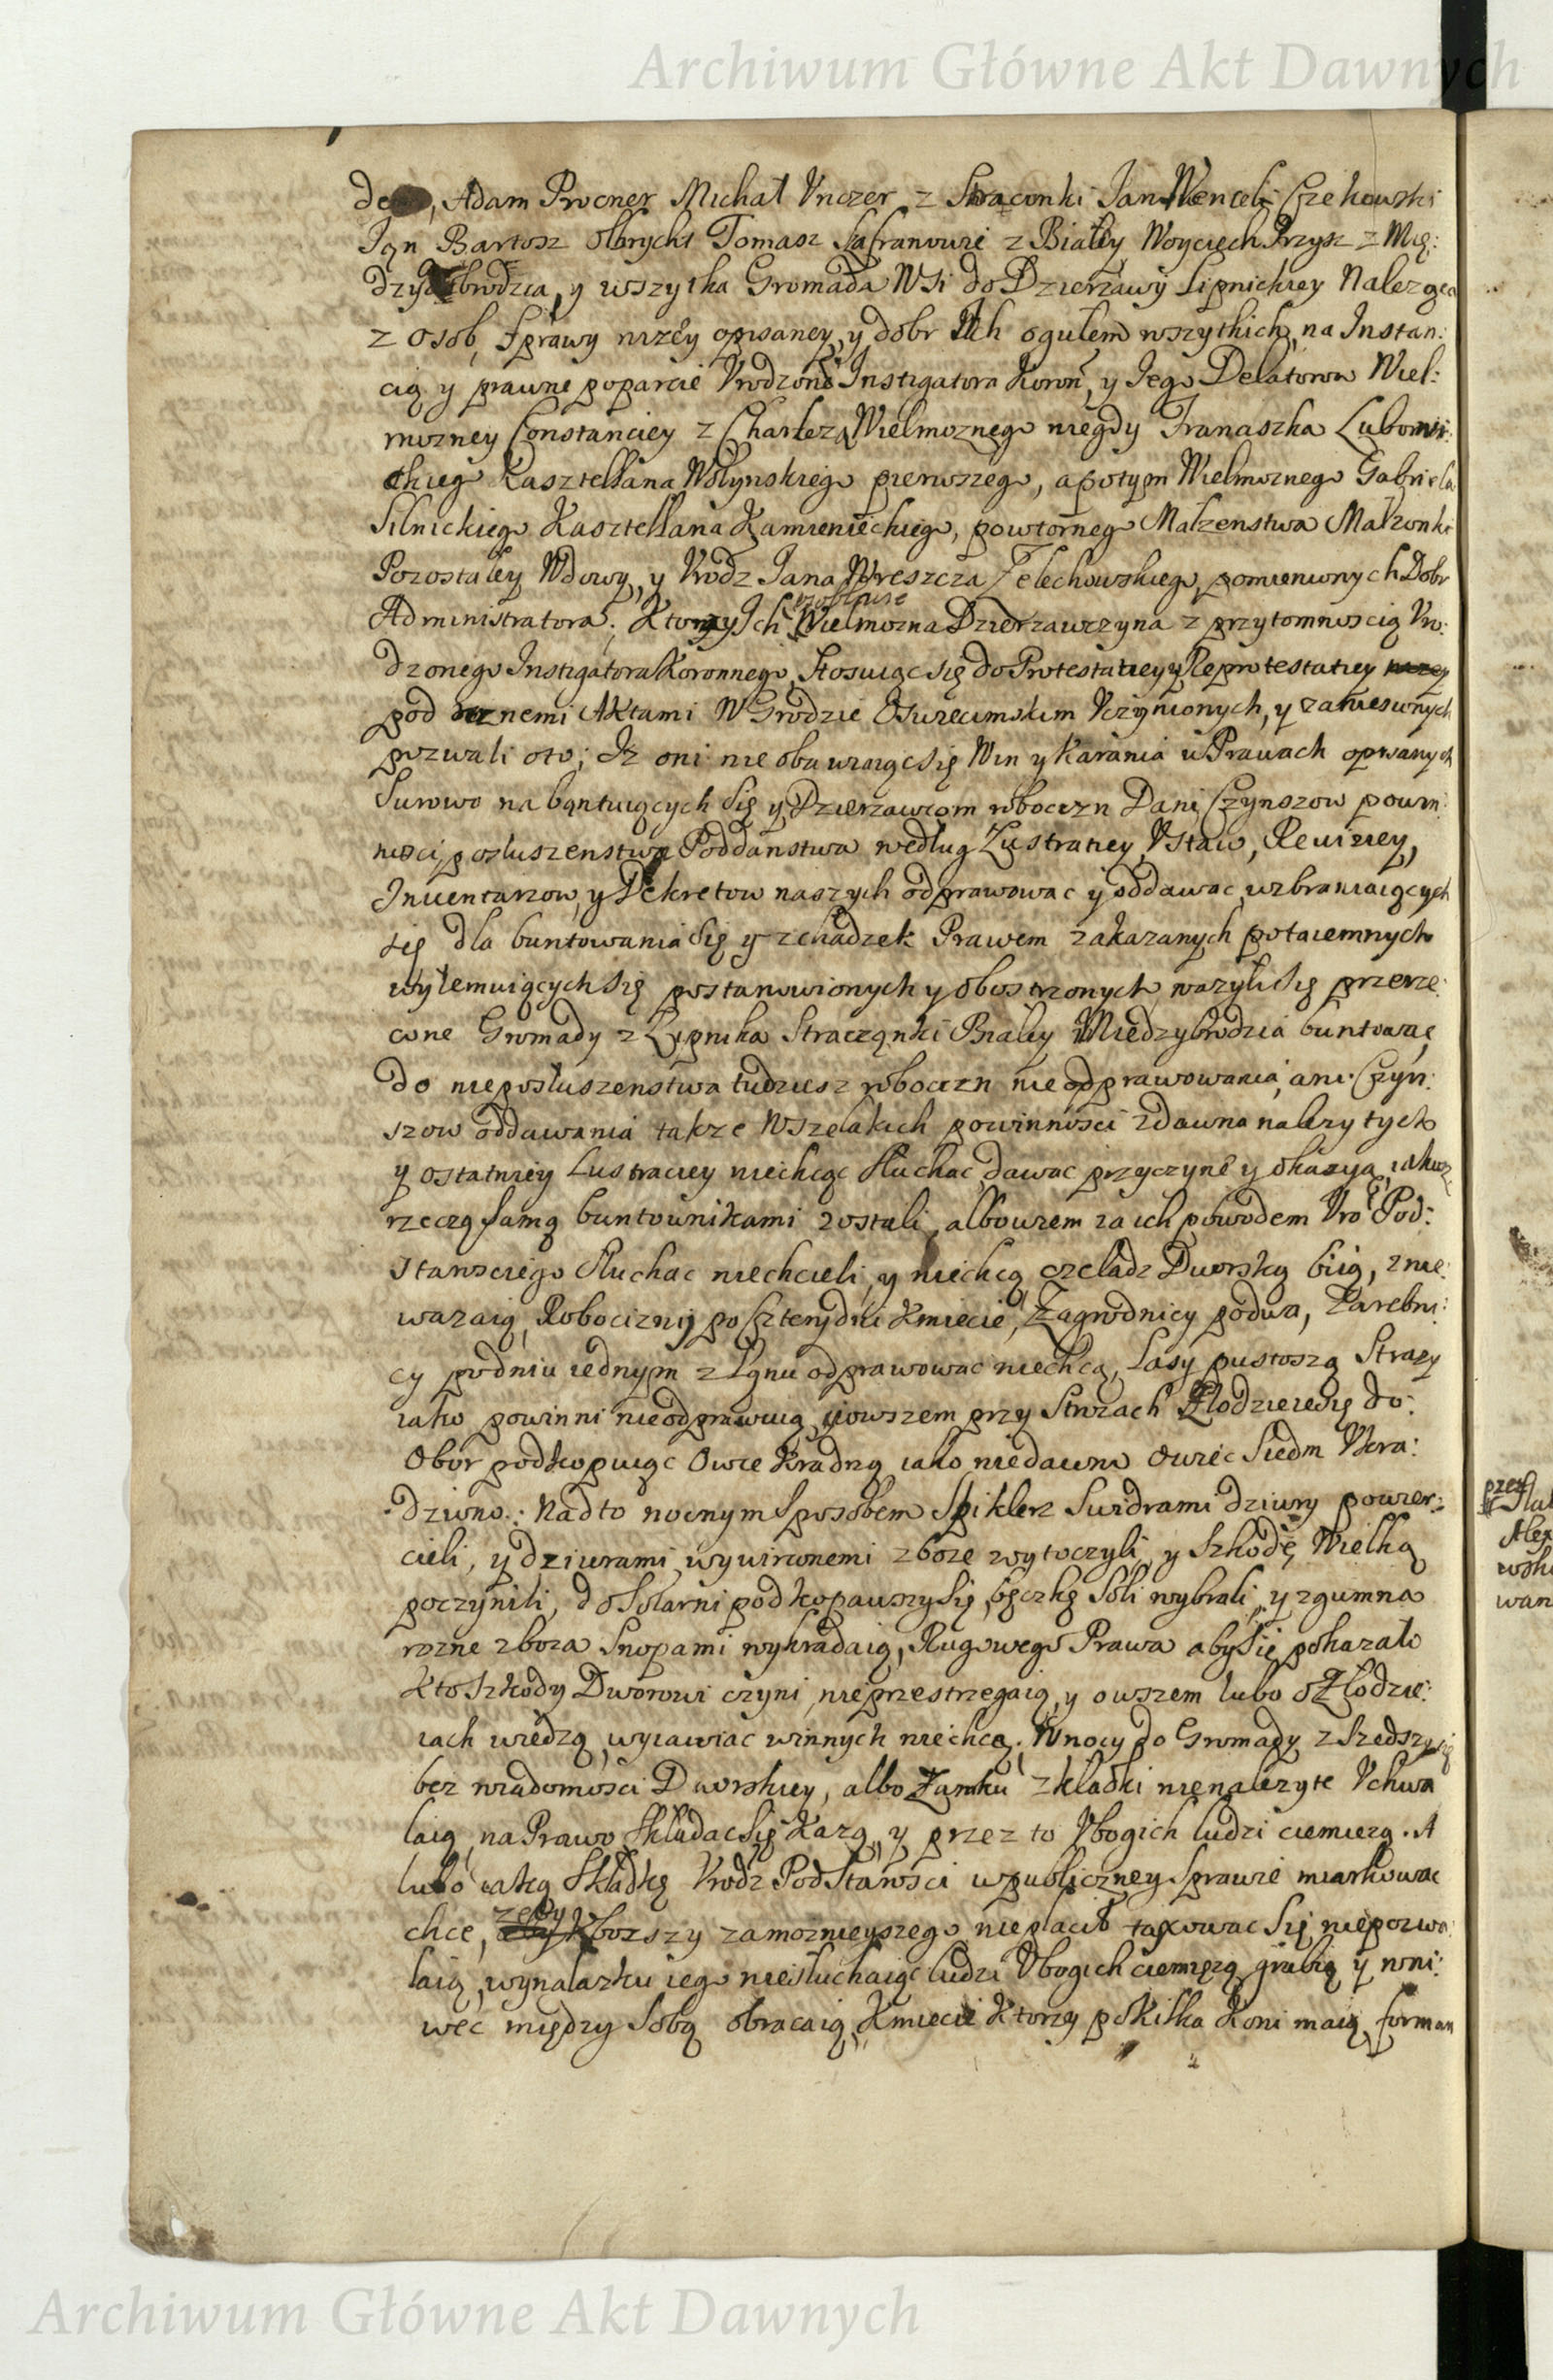 Archiwum Główne Akt Dawnych
Adam Procner Michał Vnczer z Straconki Jan Wencel Czehowski
Jan Bartosz Olbrycht Tomasz Safranowie z Biały Woyciech Krzysz z Mię:
dzybrodzia, y wszytka Gromada Wsi do Dzierzawy Lipnickiey Naleząca
z osób, sprawy nizey opisaney, y dobr Ich ogułem wszytkich, na Instan:
cią y prawne poparcie Vrodzone Instigatora Koron, y Jego Delatorow Wiel:
mozney Constanciey z Charłęza Wielmoznego niegdy Franaszka Lubowi:
ckiego Kasztellana Wołynskiego pierwszego, apotym Wielmoznego Gabriela
Silnickiego Kasztellana Kamienieckiego, powtornego Małzenstwa Małzonki
Pozostałey Wdowy, y Vrodz Jana Wreszcza Zelechowskiego, pomienionych Dobr
Administratora; Ktorzy Ich Wielmozna Dzierzawczyna z przytomnoscią Vro:
dzonego Instigatora Koronnego, Stosuiąc się do Protestatiey y Reprotestatiey
pod roznemi Aktami W Grodzie Oswiecimskim Vczynionych, y zaniesionych
pozwali oto; Iz oni nie obawiaiąc się Win y Karania w Prawach opisanych
Surowo na bąntuiących się y Dzierzawcom roboczn Dani Czynszow powin:
nosci, posłuszenstwa Poddanstwa według Lustratiey Vstaw, Rewiziey,
Inwentarzow, y Dekretow naszych odprawowac y oddawac, wzbraniaiących
się dla buntowania się y zchadzek Prawem zakazanych potaiemnych
wyłemuiących się postanowionych y obostrzonych wazyli się przerze:
czone Gromady z Lipnika Stracząnki Biały Miedzybrodzia buntowac
do nieposłuszenstwa tudziesz roboczn nie odprawowania, ani Czyn:
szow oddawania takze Wszelakich powinnosci zdawna nalezytych
y ostatniey Lustraciey niechcąc słuchac, dawac przyczynę y okazyą, iakosz
rzeczą samą buntownikami zostali, albowiem za ich powodem Vro Pod:
starosciego Słuchac niechcieli, y niechcą czeladz Dworską biią, znie:
wazaią, Robocizny po Cztery dni Kmiecie, Zagrodnicy po dwa, Zarebni:
cy po dniu iednym z Łanu odprawowac niechcą, Lasy pustoszą Strazy
iako powinni nieodprawuią, y owszem przy Strozach Złodzieie się do:
Obor podkopuiąc Owce Kradną iako niedawno Owiec Siedm Vkra:
dziono. Nad to nocnym sposobem Spiklerz Swidrami dziury powier:
cieli, y dziurami wywirconemi zboze wytoczyli, y Szkodę Wielką
poczynili, do Solarni podkopawszy się, beczkę Soli wybrali, y z gumna
rozne zboza Snopami wykradaią, Rugowego Prawa aby się pokazało
Kto Szkody Dworowi czyni, nieprzestrzegaią, y owszem lubo o Złodzie:
iach wiedzą, wyiawiac winnych niechcą. W nocy do Gromady zszedszy się
bez wiadomosci Dworskiey, albo Zamku zkładki nienalezyte Vchwa
laią, na Prawo składac się Kazą, y przez to Vbogich ludzi ciemięzą. A
lubo iaką składkę Vrodz PodStarosci w publiczney sprawie miarkowac
chce, zeby Vbozszy zamoznieyszego niepłacił taxowac się niepozwa:
laią, wynalazku iego niesłuchaiąc ludzi Vbogich ciemięzą, grabią y wni:
wec między Sobą obracaią, Kmiecie Ktorzy po Kilka Koni maią, forman
przez
Archiwum Główne Akt Dawnych